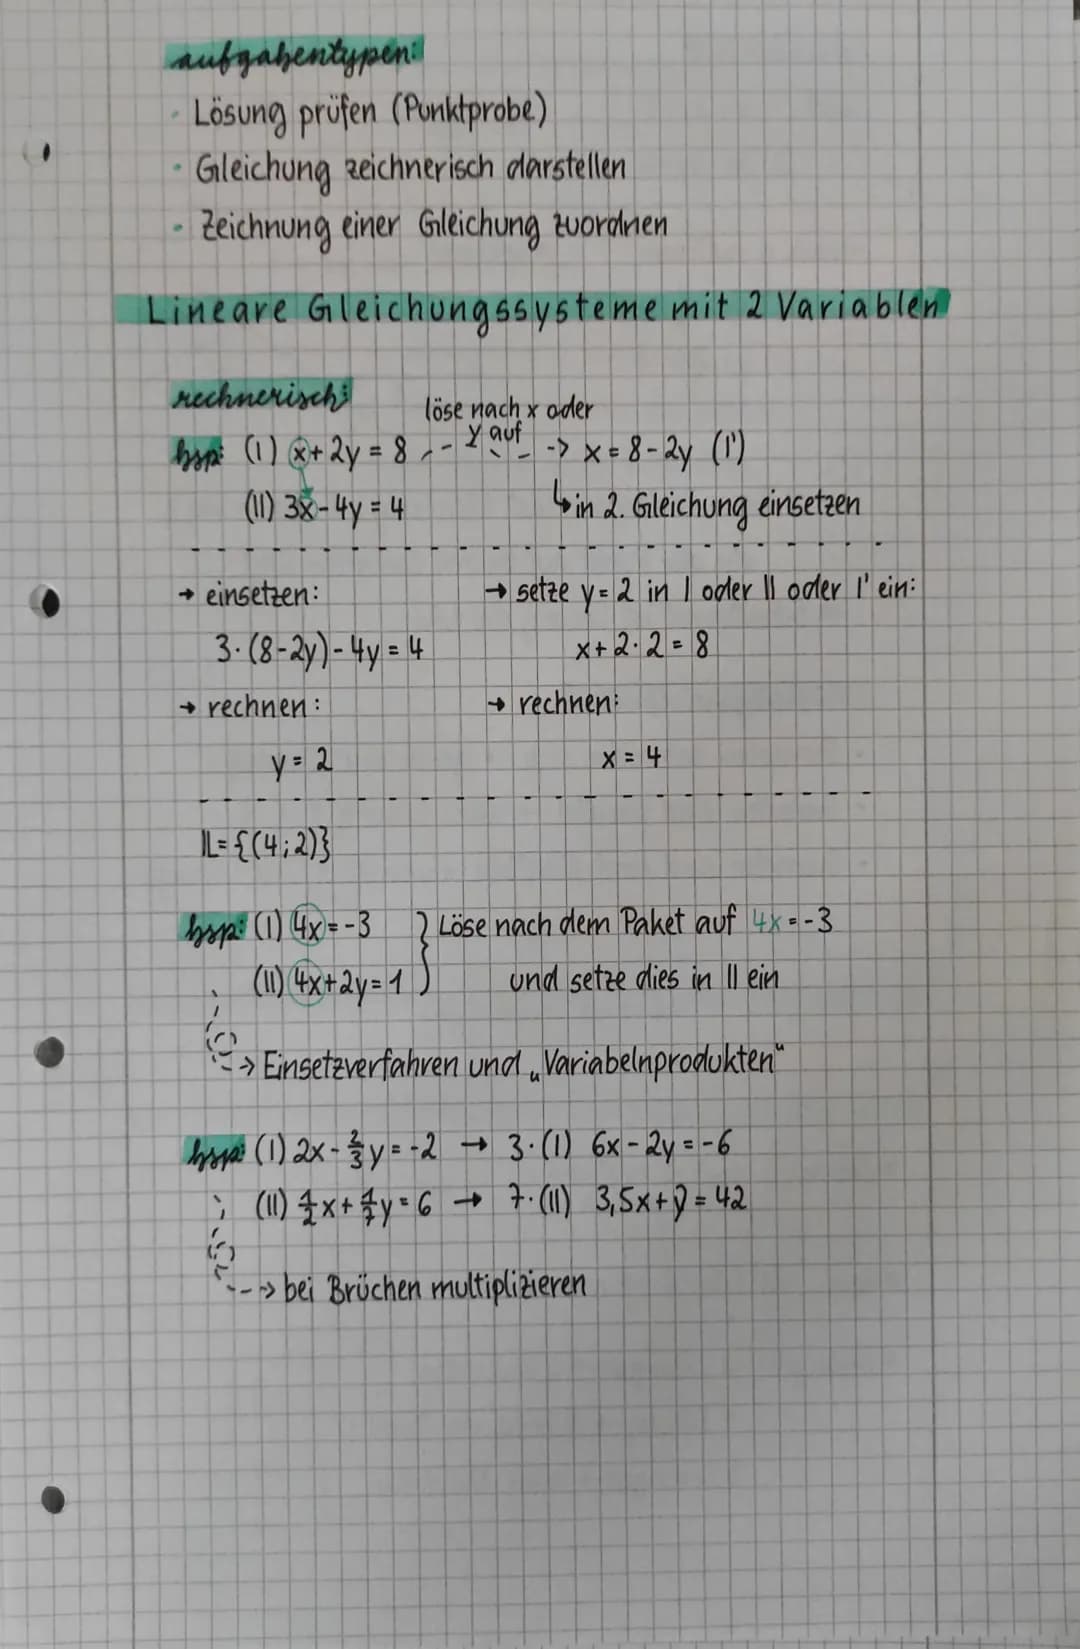 aufgabentypen:
· Lösung prüfen (Punktprobe)
· Gleichung zeichnerisch darstellen
· Zeichnung einer Gleichung zuordnen
Lineare Gleichungssysteme mit 2 Variablen
rechnerisch:
löse nach x oder
y auf
bsp: (I) x + 2y = 8 -> x = 8 - 2y (I')
(II) 3x - 4y = 4 ↳ in 2. Gleichung einsetzen
→ einsetzen: → setze y = 2 in I oder II oder I' ein:
3 · (8 - 2y) - 4y = 4 x + 2 · 2 = 8
→ rechnen: → rechnen:
y = 2 x = 4
𝕃 = {(4; 2)}
bsp: (I) 4x = -3 } Löse nach dem Paket auf 4x = -3
(II) 4x + 2y = 1 } und setze dies in II ein
-> Einsetzverfahren und „Variabelnprodukten“
bsp: (I) 2x - 2/3 y = -2 → 3 · (I) 6x - 2y = -6
(II) 1/2 x + 1/7 y = 6 → 7 · (II) 3,5x + y = 42
--> bei Brüchen multiplizieren